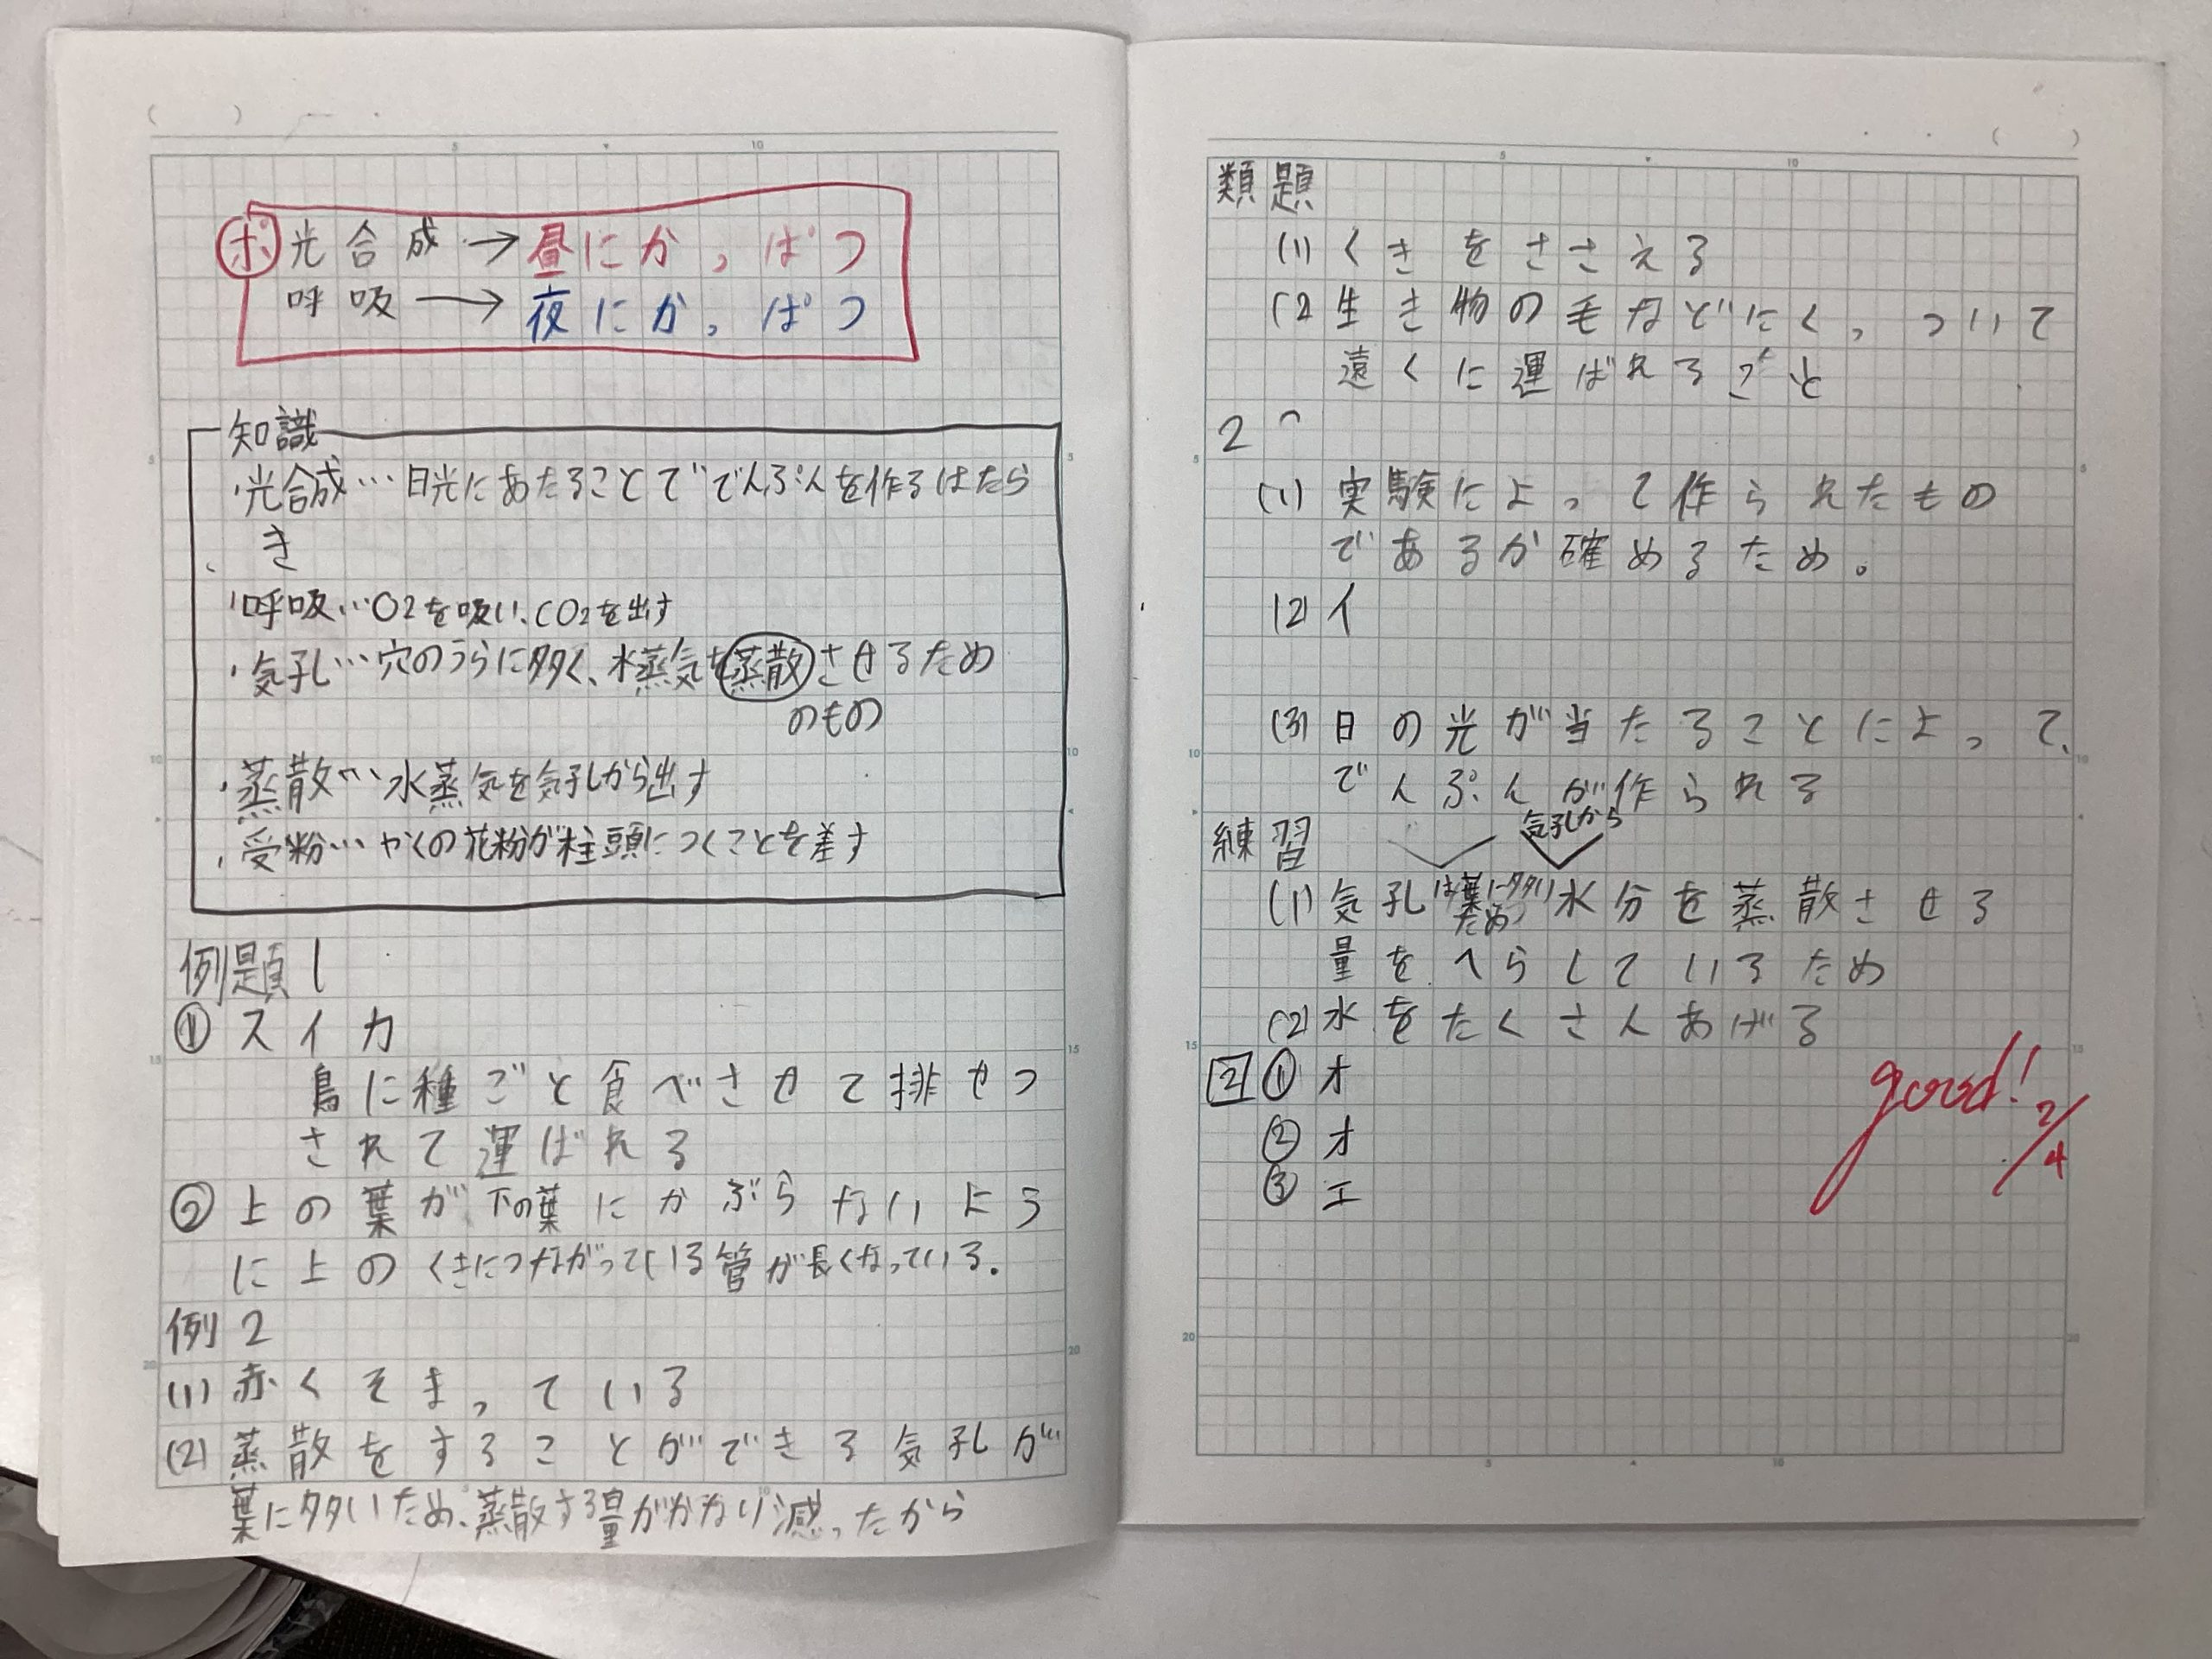 ポ 光合成→昼にかっぱつ
呼吸→夜にかっぱつ
知識
・光合成…日光にあたることででんぷんを作るはたら
き
・呼吸…O2を吸い、CO2を出す
・気孔…穴のうらに多く、水蒸気を蒸散させるため
のもの
・蒸散…水蒸気を気孔から出す
・受粉…やくの花粉が柱頭につくことを差す
例題1
① スイカ
鳥に種ごと食べさせて排せつ
されて運ばれる
② 上の葉が下の葉にかぶらないよう
に上のくきにつながっている管が長くなっている.
例2
(1) 赤くそまっている
(2) 蒸散をすることができる気孔が
葉に多いため、蒸散する量がかなり減ったから
類題
(1) くきをささえる
(2) 生き物の毛などにくっついて
遠くに運ばれること
2
(1) 実験によって作られたもの
であるか確めるため。
(2) イ
(3) 日の光が当たることによって、
でんぷんが作られる
気孔から
練習
(1) 気孔は葉に多いため水分を蒸散させる
量をへらしているため
(2) 水をたくさんあげる
2 ① オ
② オ
③ エ
good! 2/4